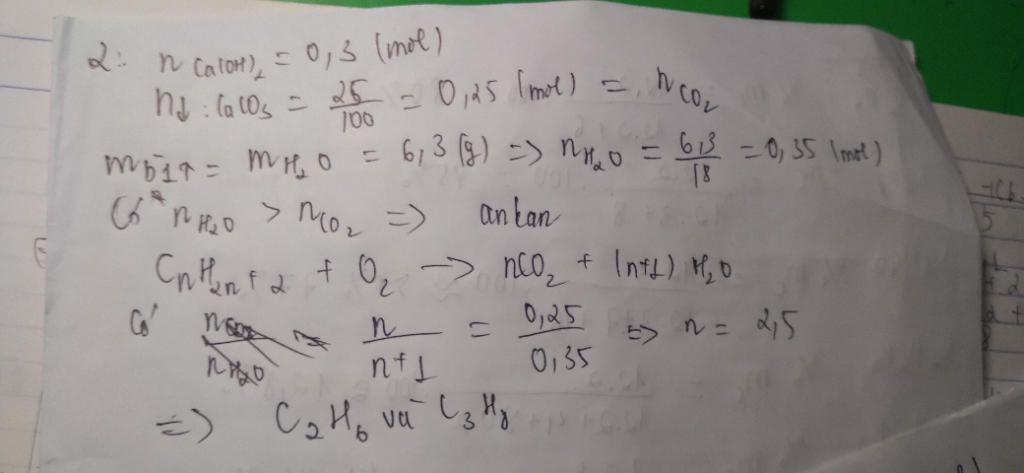 2: n Ca(OH)₂ = 0,3 (mol)
n↓ : CaCO₃ = 25/100 = 0,25 (mol) = n CO₂
m b1↑ = m H₂O = 6,3 (g) => n H₂O = 6,3/18 = 0,35 (mol)
Có n H₂O > n CO₂ => ankan
CnH2n+2 + O₂ → nCO₂ + (n+1) H₂O
Có n/n+1 = 0,25/0,35 => n = 2,5
=> C₂H₆ và C₃H₈